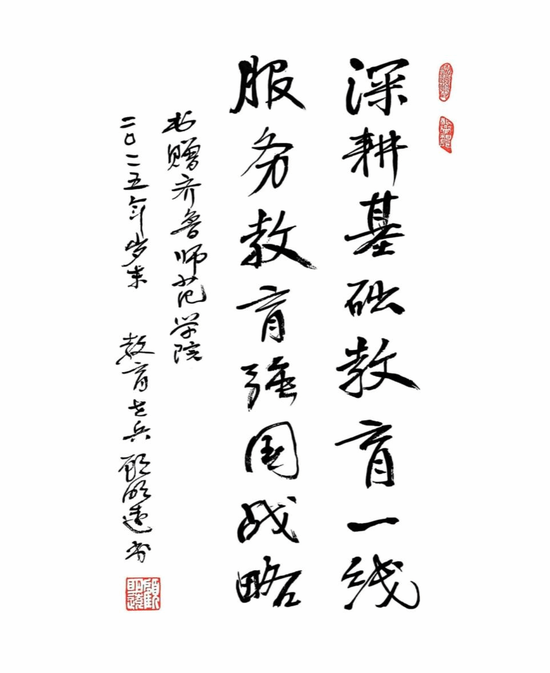 深耕基础教育一线
服务教育强国战略
书赠齐鲁师范学院
二〇二五年岁末 教育老兵顾明远书